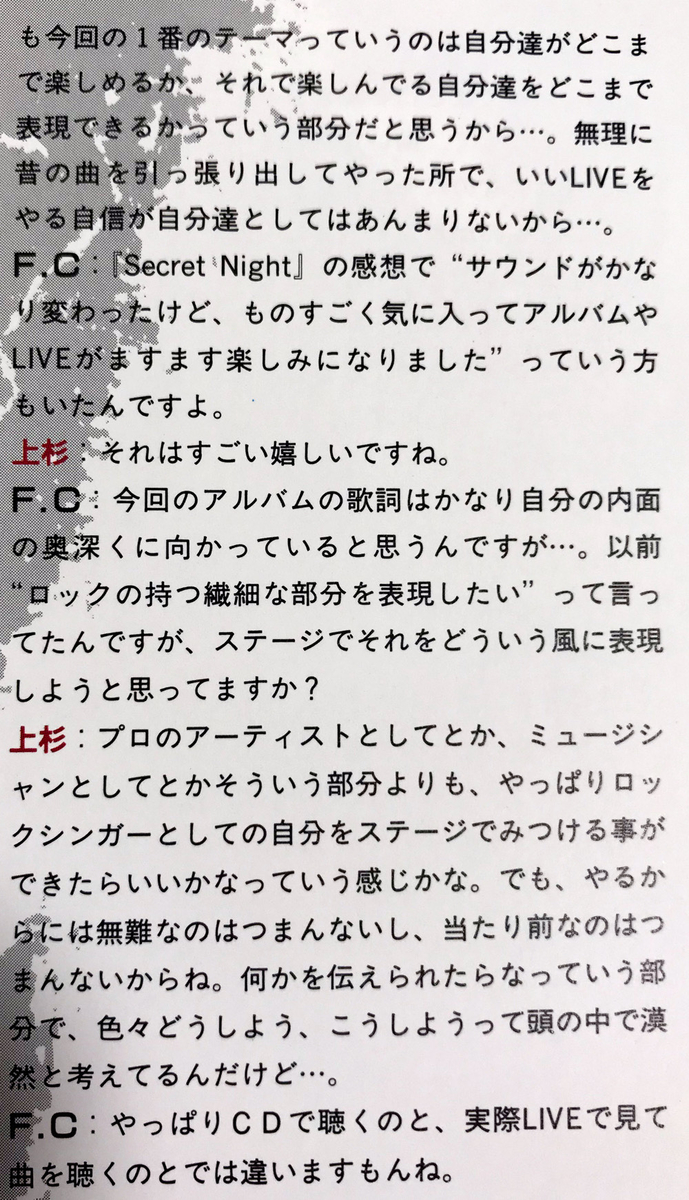 も今回の1番のテーマっていうのは自分達がどこま
で楽しめるか、それで楽しんでる自分達をどこまで
表現できるかっていう部分だと思うから…。無理に
昔の曲を引っ張り出してやった所で、いいLIVEを
やる自信が自分達としてはあんまりないから…。
F.C：『Secret Night』の感想で“サウンドがかな
り変わったけど、ものすごく気に入ってアルバムや
LIVEがますます楽しみになりました”っていう方
もいたんですよ。
上杉：それはすごい嬉しいですね。
F.C：今回のアルバムの歌詞はかなり自分の内面
の奥深くに向かっていると思うんですが…。以前
“ロックの持つ繊細な部分を表現したい”って言っ
てたんですが、ステージでそれをどういう風に表現
しようと思ってますか？
上杉：プロのアーティストとしてとか、ミュージシ
ャンとしてとかそういう部分よりも、やっぱりロッ
クシンガーとしての自分をステージでみつける事が
できたらいいかなっていう感じかな。でも、やるか
らには無難なのはつまんないし、当たり前なのはつ
まんないからね。何かを伝えられたらなっていう部
分で、色々どうしよう、こうしようって頭の中で漠
然と考えてるんだけど…。
F.C：やっぱりCDで聴くのと、実際LIVEで見て
曲を聴くのとでは違いますもんね。